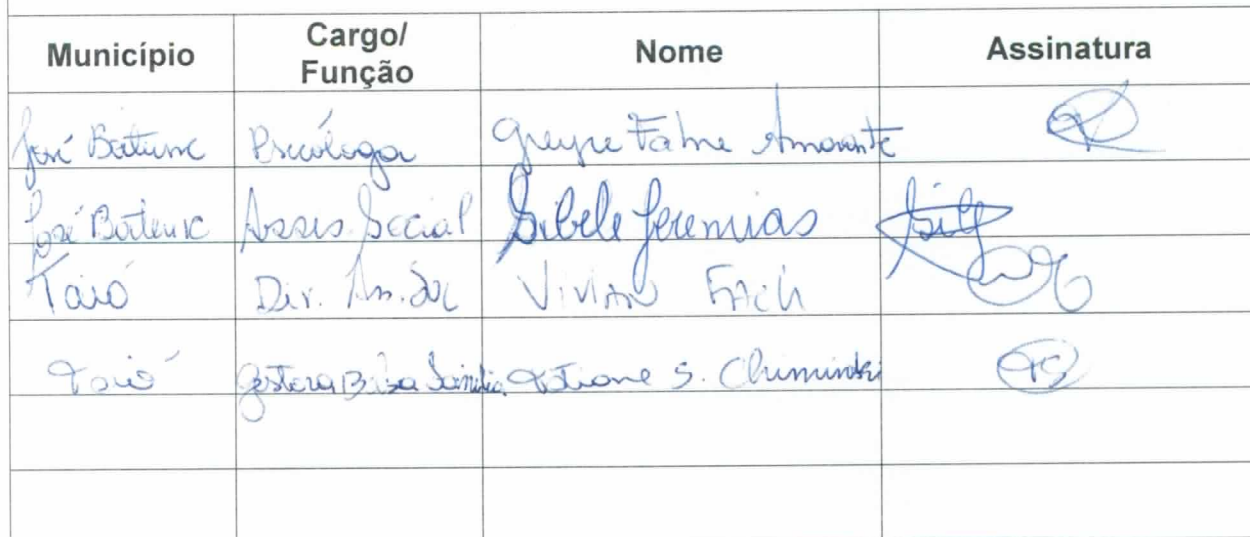 Município Cargo/ Função Nome Assinatura
José Boiteux Psicóloga Amarante
José Boiteux Assis. Social Sibele Jeremias
Taió Dir. As. Soc VIVIAN FACH
Taió Gestora Bolsa Família Tatiane S. Chiminski